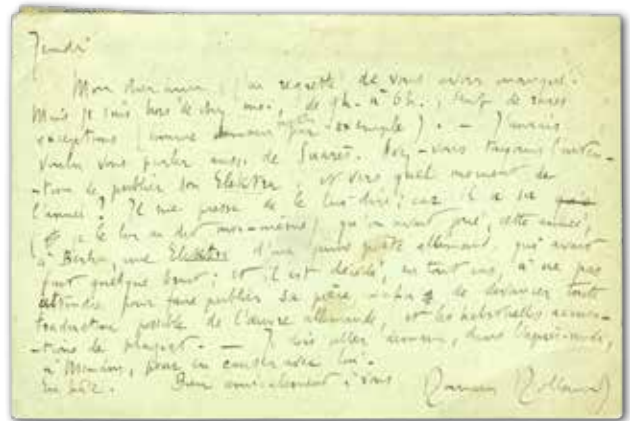 Jeudi
Mon cher ami, j'ai regretté de vous avoir manqué.
Mais je suis hors de chez moi, de 9h. à 6h., sauf de rares
exceptions (comme demain par exemple). — J'aurais
voulu vous parler aussi de Suarès. Avez-vous toujours l'inten-
-tion de publier son Elektra, et vers quel moment de
l'année ? Il me presse de le lui dire ; car il a su
(je le lui ai dit moi-même) qu'on avait joué, cette année,
à Berlin, une Elektra d'un jeune poète allemand, qui avait
fait quelque bruit ; et il est décidé, en tout cas, à ne pas
attendre pour faire publier sa pièce, afin de devancer toute
traduction possible de l'œuvre allemande, et les habituelles accusa-
-tions de plagiat. — Je dois aller demain, dans l'après-midi,
à Meudon, pour en causer avec lui.
En hâte. Bien amicalement à vous
Romain Rolland